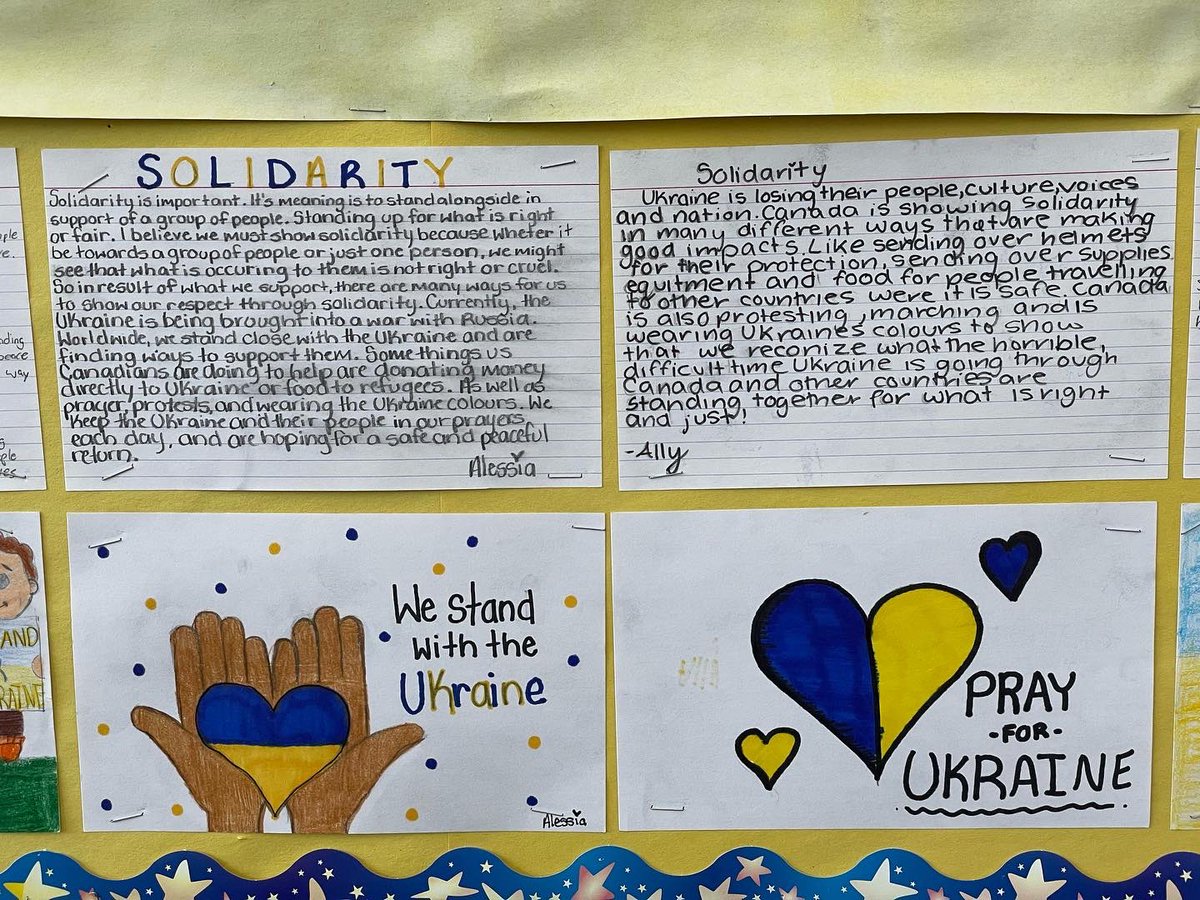 SOLIDARITY
Solidarity is important. It's meaning is to stand alongside in
support of a group of people. Standing up for what is right
or fair. I believe we must show solidarity because wheter it
be towards a group of people or just one person, we might
see that what is occuring to them is not right or cruel.
So in result of what we support, there are many ways for us
to show our respect through solidarity. Currently, the
Ukraine is being brought into a war with Russia.
Worldwide, we stand close with the Ukraine and are
finding ways to support them. Some things us
Canadians are doing to help are donating money
directly to Ukraine or food to refugees. As well as
prayer, protests, and wearing the Ukraine colours. We
keep the Ukraine and their people in our prayers
each day, and are hoping for a safe and peaceful
return.
Alessia
Solidarity
Ukraine is losing their people, culture, voices
and nation. Canada is showing Solidarity
in many different ways that are making
good impacts. Like sending over helmets
for their protection, sending over supplies
equitment and food for people travelling
to other countries were it is safe. Canada
is also protesting, marching and is
wearing Ukraines colours to show
that we reconize what the horrible,
difficult time Ukraine is going through
Canada and other countries are
standing together for what is right
and just!
-Ally
We stand
with the
Ukraine
Alessia
PRAY
-FOR-
UKRAINE
AND
RAINE
nding
way